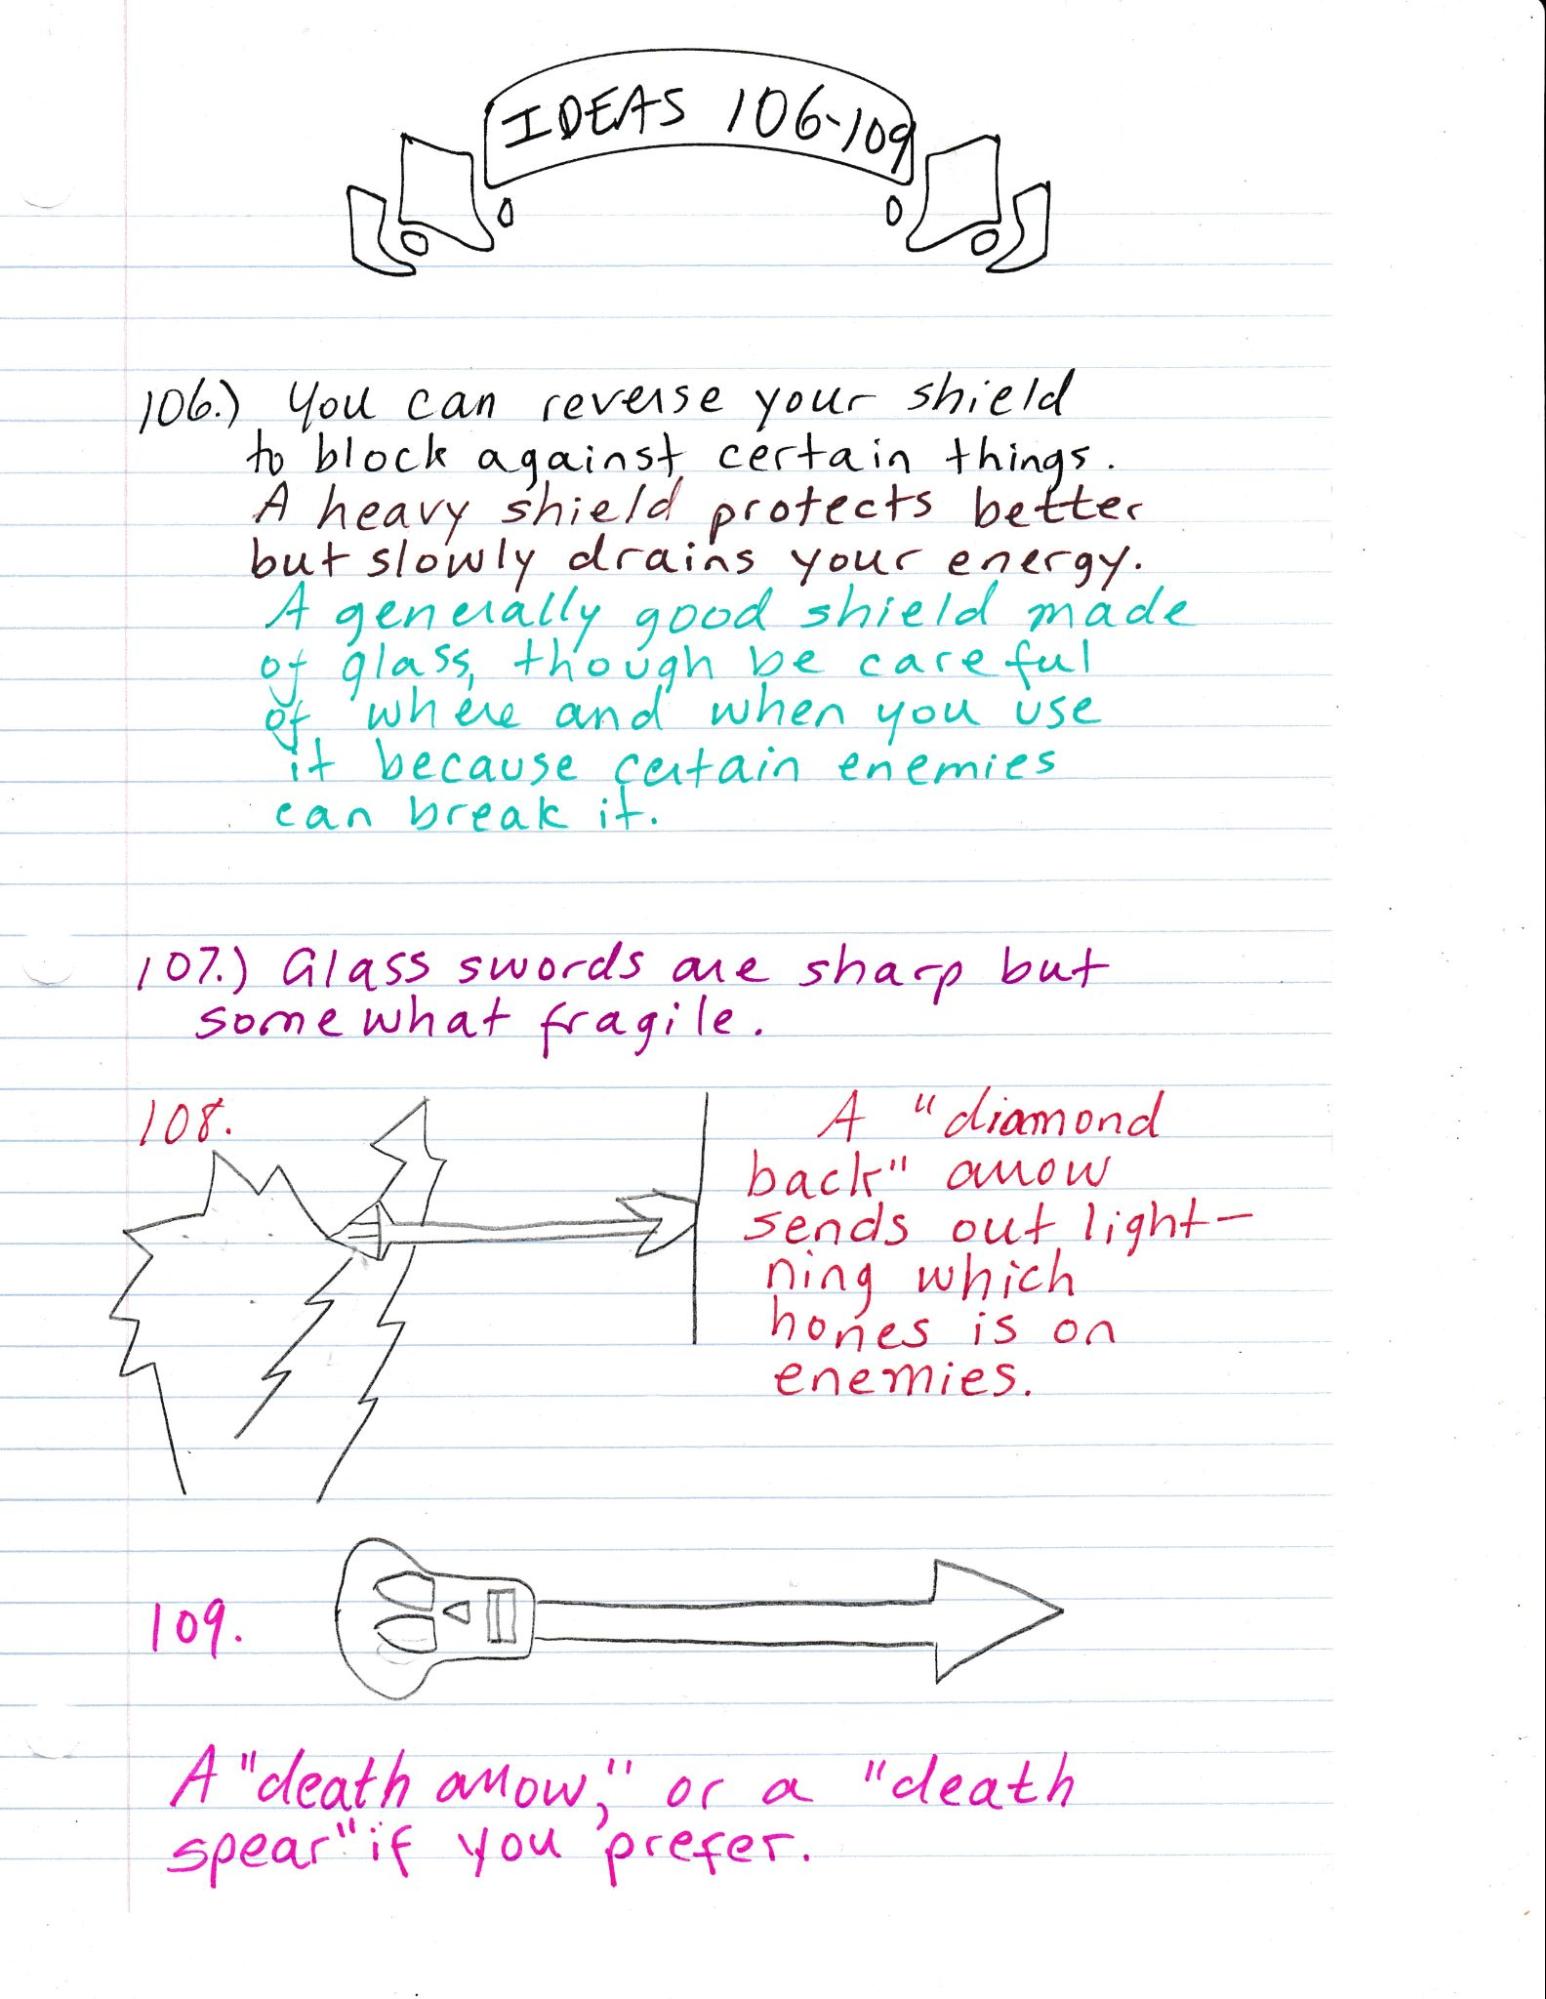 IDEAS 106-109
106.) You can reverse your shield
to block against certain things.
A heavy shield protects better
but slowly drains your energy.
A generally good shield made
of glass, though be careful
of where and when you use
it because certain enemies
can break it.
107.) Glass swords are sharp but
somewhat fragile.
108.
A "diamond
back" arrow
sends out light-
ning which
hones is on
enemies.
109.
A "death arrow," or a "death
spear" if you prefer.